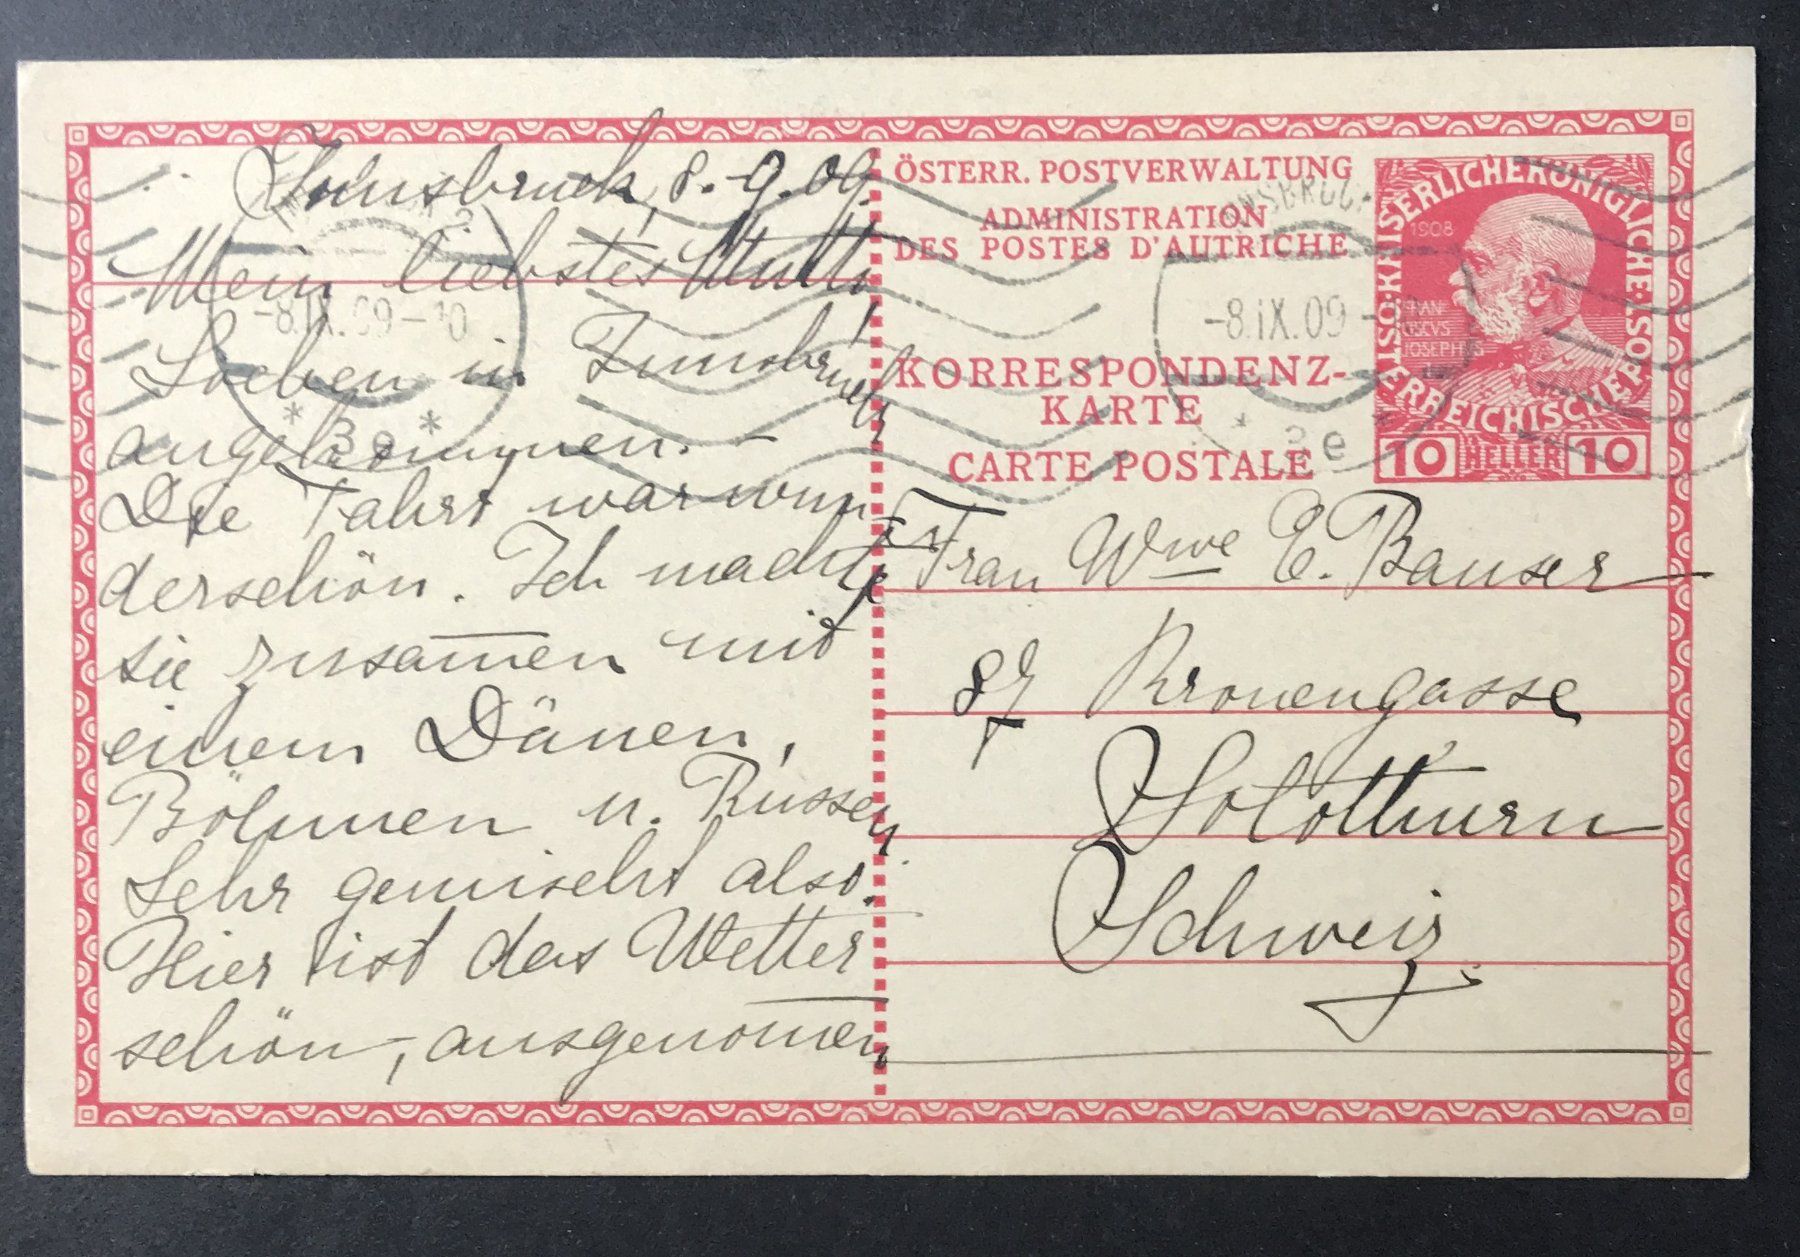 Innsbruck, 8.-9.09.
Mein liebstes Mutti
Soeben in Innsbruck
angekommen. -
Die Fahrt war wun-
derschön. Ich machte
sie zusam̅en mit
einem Dänen,
Böhmen u. Russen
Sehr gemischt also.
Hier ist das Wetter
schön -, ausgenom̅en
ÖSTERR. POSTVERWALTUNG
ADMINISTRATION
DES POSTES D'AUTRICHE
KORRESPONDENZ-
KARTE
CARTE POSTALE
KAISERLICHEKÖNIGLICHE·ÖSTERREICHISCHEPOST
1908
FRAN
CISCVS
JOSEPHVS
10 HELLER 10
INNSBRUCK
-8.IX.09-10
* 3e *
INNSBRUCK
-8.IX.09-
* 3e *
Frau Wwe E. Bauser
87 Kronengasse
Solothurn
Schweiz